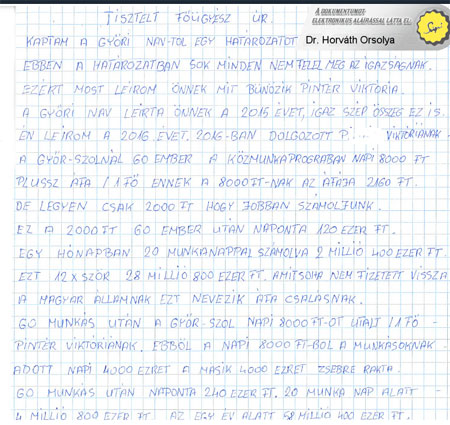 TISZTELT FŐÜGYÉSZ ÚR.
A DOKUMENTUMOT
ELEKTRONIKUS ALÁÍRÁSSAL LÁTTA EL:
Dr. Horváth Orsolya
KAPTAM A GYŐRI NAV-TÓL EGY HATÁROZATOT
EBBEN A HATÁROZATBAN SOK MINDEN NEM FELEL MEG AZ IGAZSÁGNAK.
EZÉRT MOST LEÍROM ÖNNEK MIT BŰNÖZIK PINTÉR VIKTÓRIA.
A GYŐRI NAV LEÍRTA ÖNNEK A 2015 ÉVET, IGAZ SZÉP ÖSSZEG EZ IS.
ÉN LEÍROM A 2016 ÉVET. 2016-BAN DOLGOZOTT P... VIKTÓRIÁNAK
A GYŐR-SZOLNÁL 60 EMBER A KÖZMUNKAPROGRABAN NAPI 8000 FT
PLUSSZ ÁFA /1 FŐ ENNEK A 8000 FT-NAK AZ ÁFÁJA 2160 FT.
DE LEGYEN CSAK 2000 FT HOGY JOBBAN SZÁMOLJUNK.
EZ A 2000 FT 60 EMBER UTÁN NAPONTA 120 EZER FT.
EGY HÓNAPBAN 20 MUNKANAPPAL SZÁMOLVA 2 MILLIÓ 400 EZER FT.
EZT 12 X SZÖR 28 MILLIÓ 800 EZER FT. AMIT SOHA NEM FIZETETT VISSZA
A MAGYAR ÁLLAMNAK EZT NEVEZIK ÁFA CSALÁSNAK.
60 MUNKÁS UTÁN A GYŐR-SZOL NAPI 8000 FT-OT UTALT /1 FŐ -
PINTÉR VIKTÓRIÁNAK. EBBŐL A NAPI 8000 FT-BÓL A MUNKÁSOKNAK
ADOTT NAPI 4000 EZRET A MÁSIK 4000 EZRET ZSEBRE RAKTA.
60 MUNKÁS UTÁN NAPONTA 240 EZER FT. 20 MUNKA NAP ALATT -
4 MILLIÓ 800 EZER FT. AZ EGY ÉV ALATT 58 MILLIÓ 400 EZER FT.